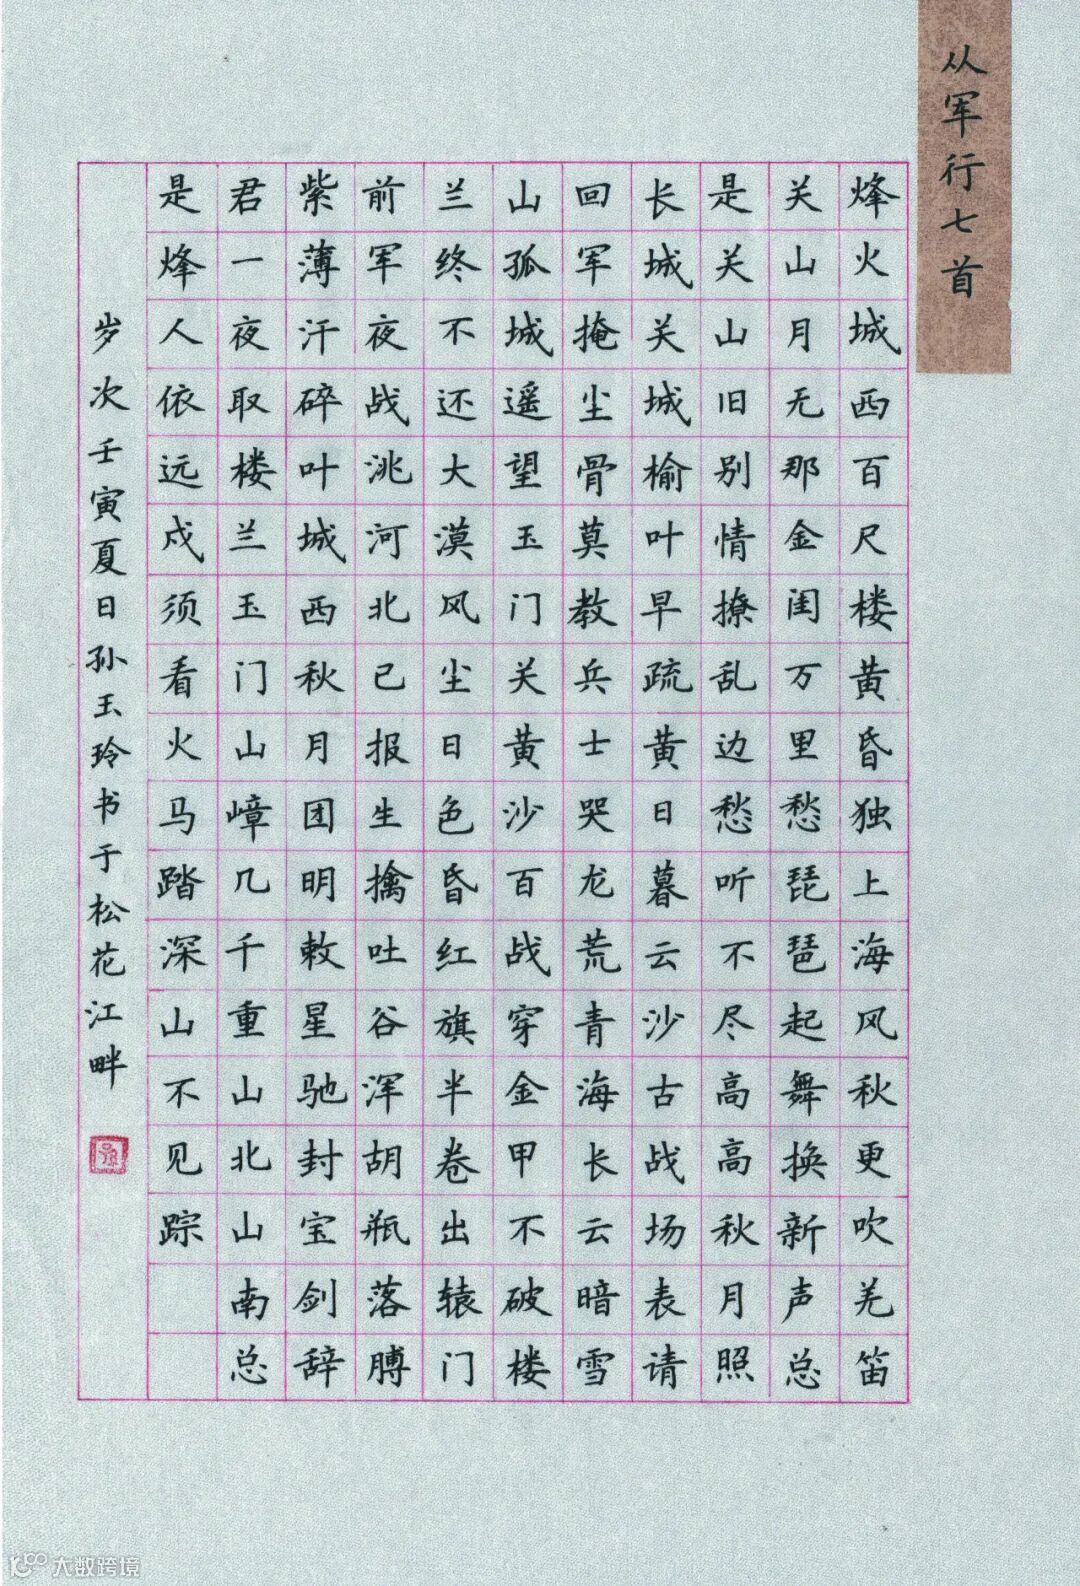 从军行七首
烽火城西百尺楼黄昏独上海风秋更吹羌笛
关山月无那金闺万里愁琵琶起舞换新声总
是关山旧别情撩乱边愁听不尽高高秋月照
长城关城榆叶早疏黄日暮云沙古战场表请
回军掩尘骨莫教兵士哭龙荒青海长云暗雪
山孤城遥望玉门关黄沙百战穿金甲不破楼
兰终不还大漠风尘日色昏红旗半卷出辕门
前军夜战洮河北已报生擒吐谷浑胡瓶落膊
紫薄汗碎叶城西秋月团明敕星驰封宝剑辞
君一夜取楼兰玉门山嶂几千重山北山南总
是烽人依远戍须看火马踏深山不见踪
岁次壬寅夏日孙玉玲书于松花江畔
大数跨境